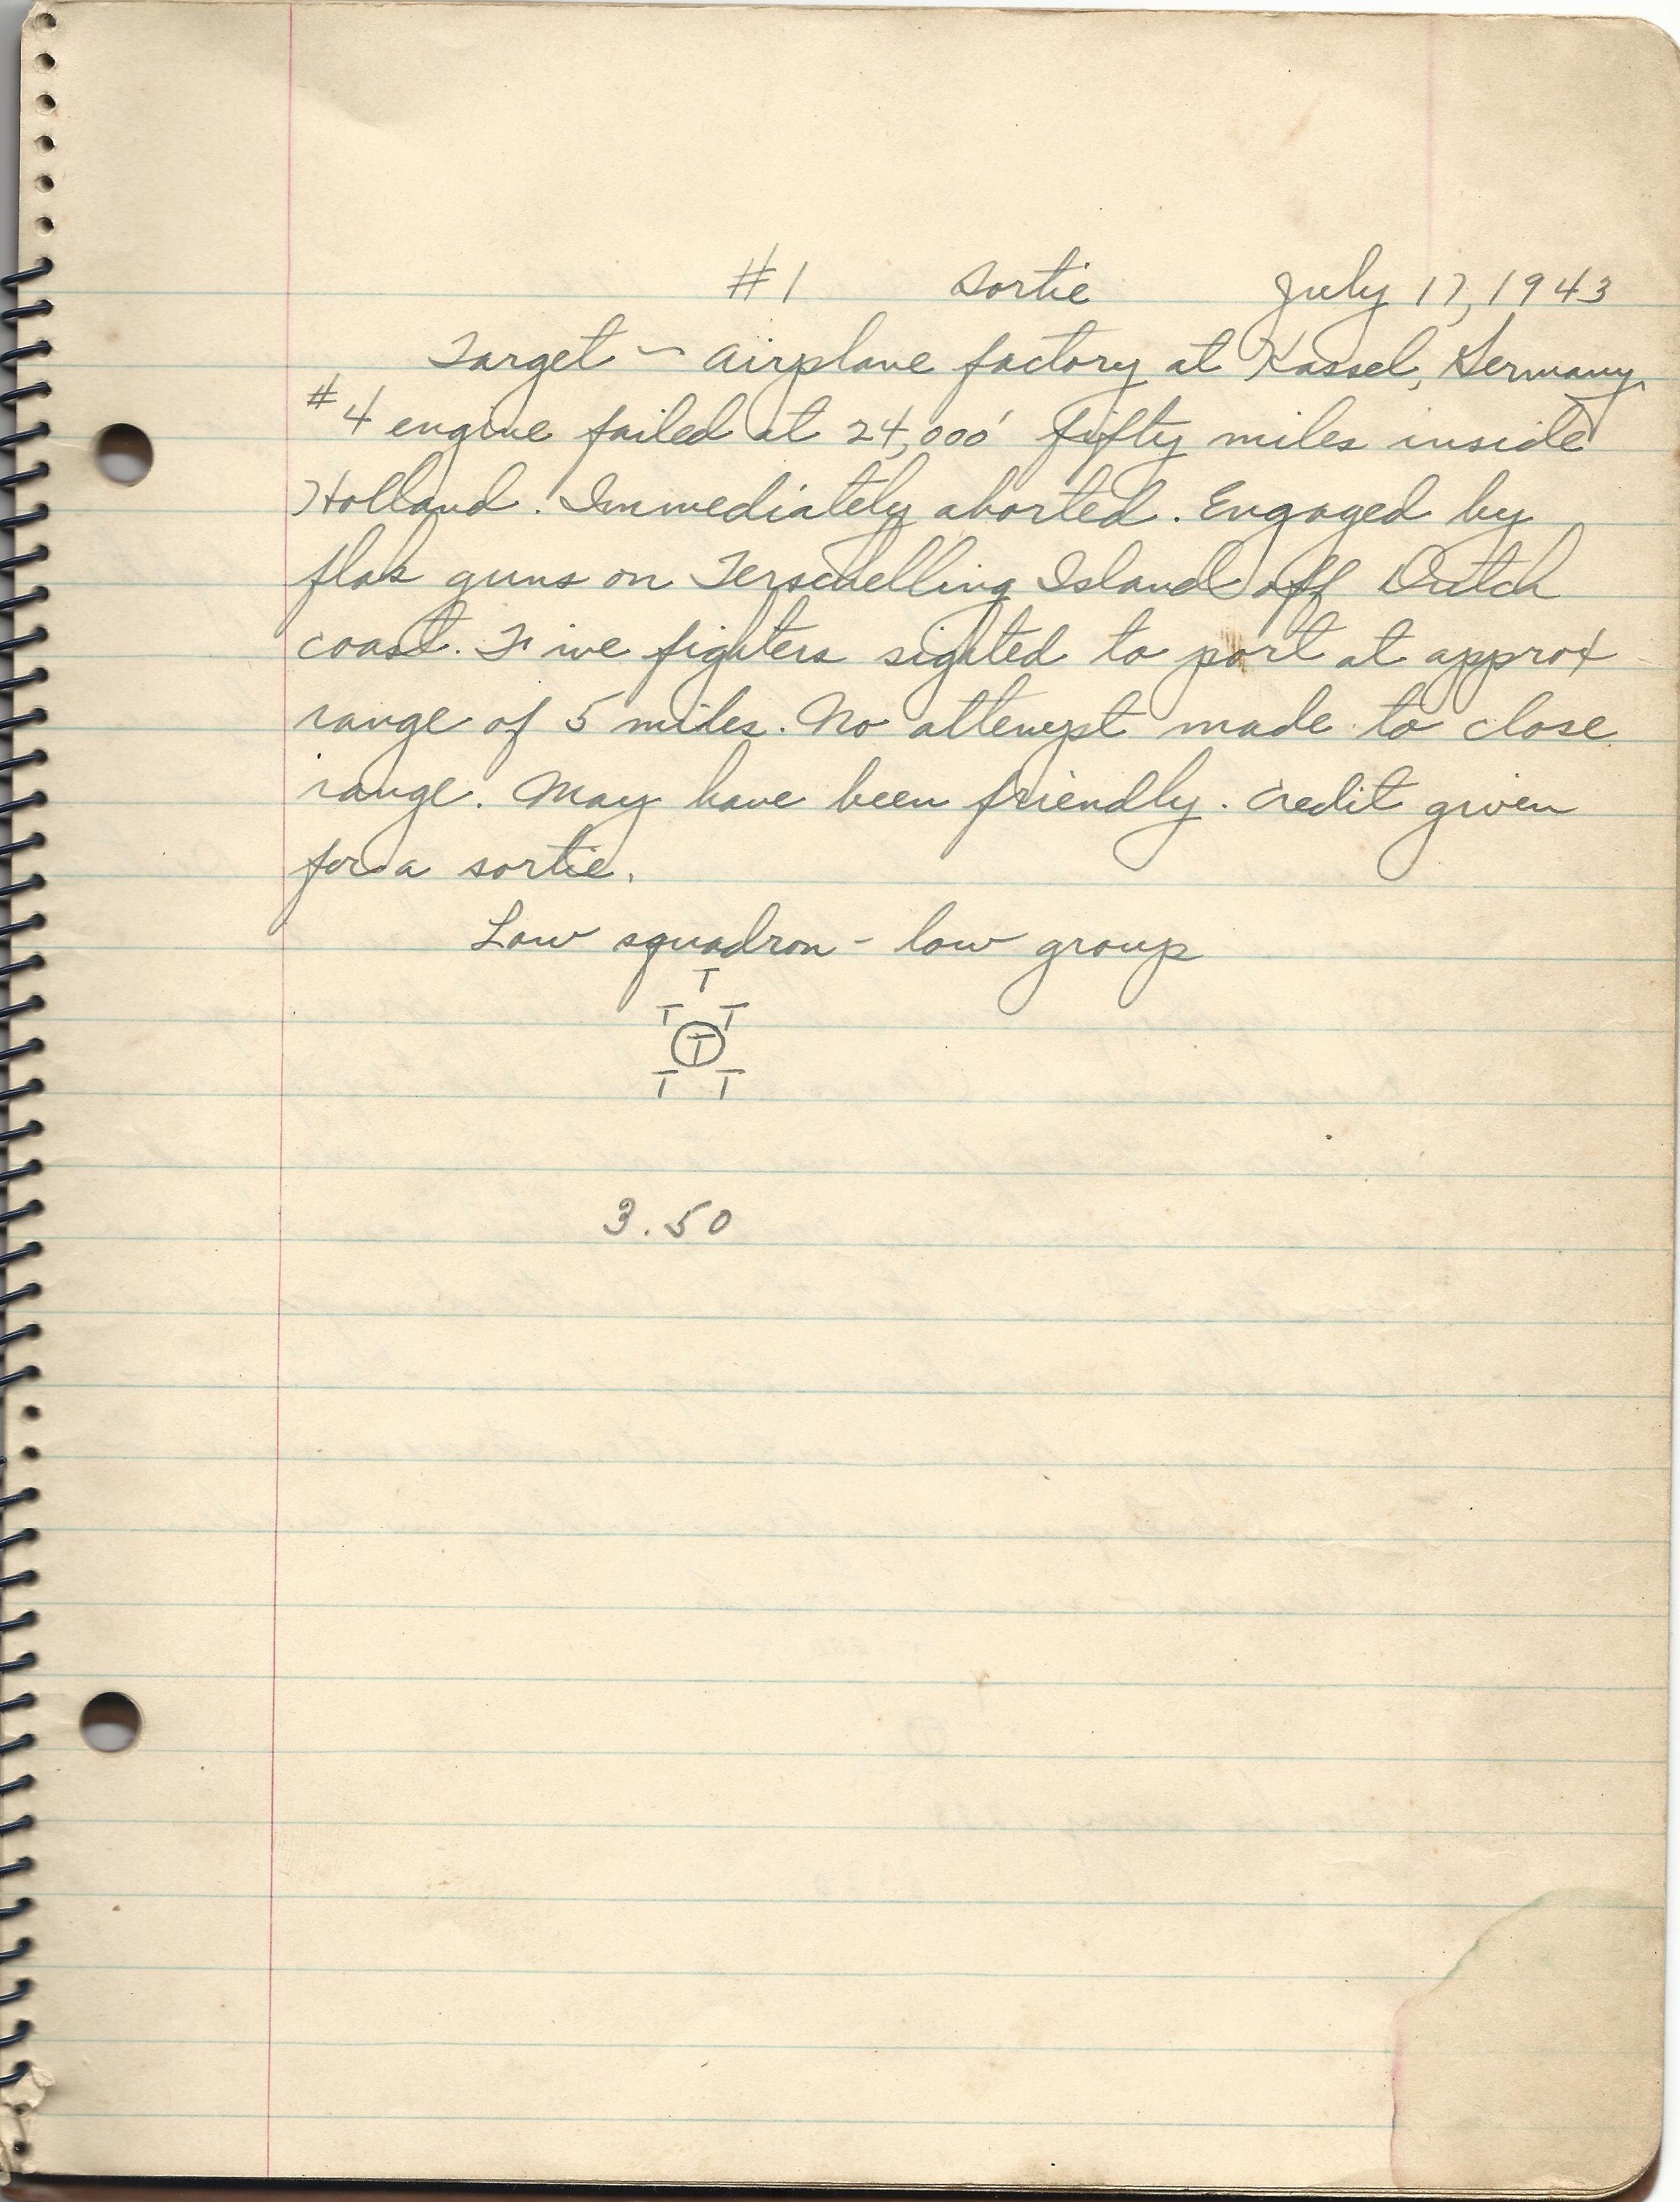 #1 Sortie July 17, 1943
Target - Airplane factory at Kassel, Germany.
#4 engine failed at 24,000' fifty miles inside
Holland. Immediately aborted. Engaged by
flak guns on Terschelling Island off Dutch
coast. Five fighters sighted to port at approx
range of 5 miles. No attempt made to close
range. May have been friendly. Credit given
for a sortie.
Low squadron - low group
T
T T
T
T T
3.50